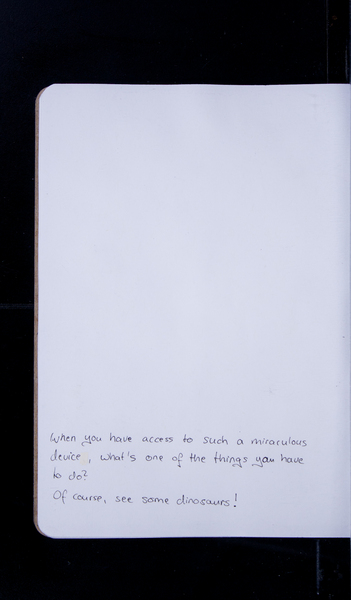 When you have access to such a miraculous
device, what's one of the things you have
to do?
Of course, see some dinosaurs!